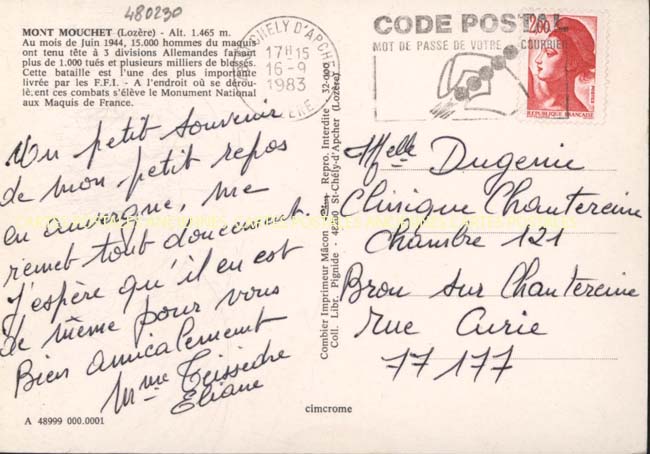 480230
MONT MOUCHET (Lozère) - Alt. 1.465 m.
Au mois de Juin 1944, 15.000 hommes du maquis
ont tenu tête à 3 divisions Allemandes faisant
plus de 1.000 tués et plusieurs milliers de blessés.
Cette bataille est l'une des plus importante
livrée par les F.F.I. - A l'endroit où se dérou-
lèrent ces combats s'élève le Monument National
aux Maquis de France.
Un petit souvenir
de mon petit repos
en auvergne, me
remet tout doucement
J'espère qu'il en est
de même pour vous
Bien amicalement
Mme Teissedre
Eliane
A 48999 000.0001
CHÉLY D'APCHER
17H15
16-9
1983
LOZÈRE
CODE POSTAL
MOT DE PASSE DE VOTRE COURRIER
2,00
RÉPUBLIQUE FRANÇAISE
Combier Imprimeur Mâcon Repro. Interdite - 32-000
Coll. Libr. Pignide - 48200 St-Chély-d'Apcher (Lozère)
Melle Dugenie
Clinique Chantereine
Chambre 121
Brou sur Chantereine
Rue Curie
77177
cimcrome